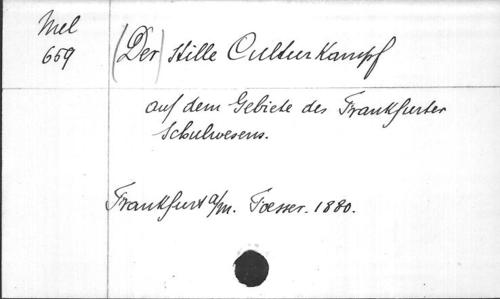 Mel
659
(Der) stille Culturkampf
auf dem Gebiete des Frankfurter
Schulwesens.
Frankfurt a/m. Foesser. 1880.